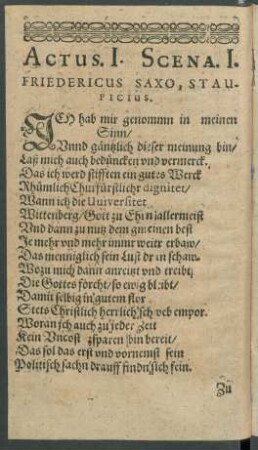 ACTUS. I. SCENA. I.
FRIEDERICUS SAXO, STAU-
PICIUS.
ICH hab mir genommn in meinen
Sinn/
Vnnd gäntzlich dieser meinung bin/
Laß mich auch bedüncken vnd vermerck.
Das ich werd stifften ein gutes Werck
Rhümlich Churfürstlichr digniret/
Wann ich die Universitet
Wittenberg/ Gott zu Ehrn zallermeist
Vnd dann zu nutz dem gmeinen best
Je mehr vnd mehr immr weitr erbaw/
Das menniglich sein Lust dran schaw.
Wozu mich dann anreitzt vnd treibt
Die Gottes förcht/ so ewig bleibt/
Damit selbig in gutem flor
Stets Christlich herrlich sch web empor.
Woran ich auch zu jeder Zeit
Kein Vncost zsparen bin bereit/
Das sol das erst vnd vornemst sein
Politisch sachn drauff findn sich fein.
Zu